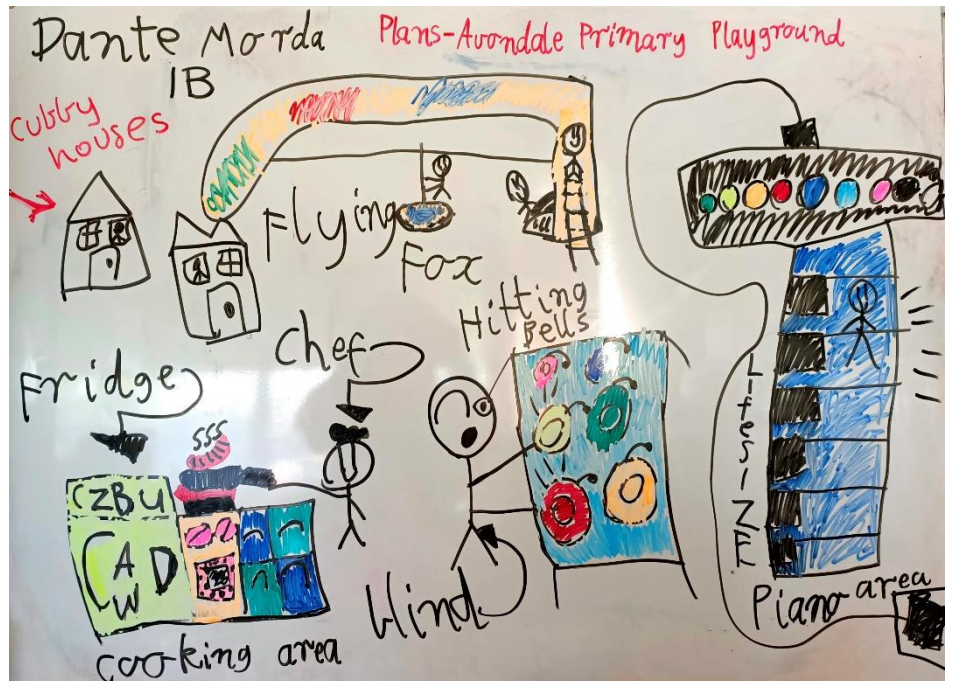 Dante Morda
1B
Plans-Avondale Primary Playground
cubby
houses
Flying
Fox
Hitting
Bells
Chef
Fridge
CZBU
CAWD
cooking area
LifesIZE
Piano area